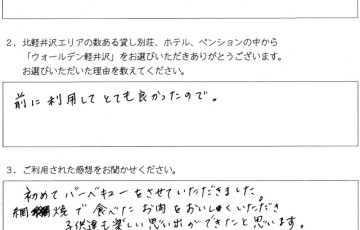 2. 北軽井沢エリアの数ある貸し別荘、ホテル、ペンションの中から
「ウォールデン軽井沢」をお選びいただきありがとうございます。
お選びいただいた理由を教えてください。
前に利用してとても良かったので。
3. ご利用された感想をお聞かせください。
初めてバーベキューをさせていただきました。
網焼で食べたお肉をおいしくいただき
子供達も楽しい思い出ができたと思います。